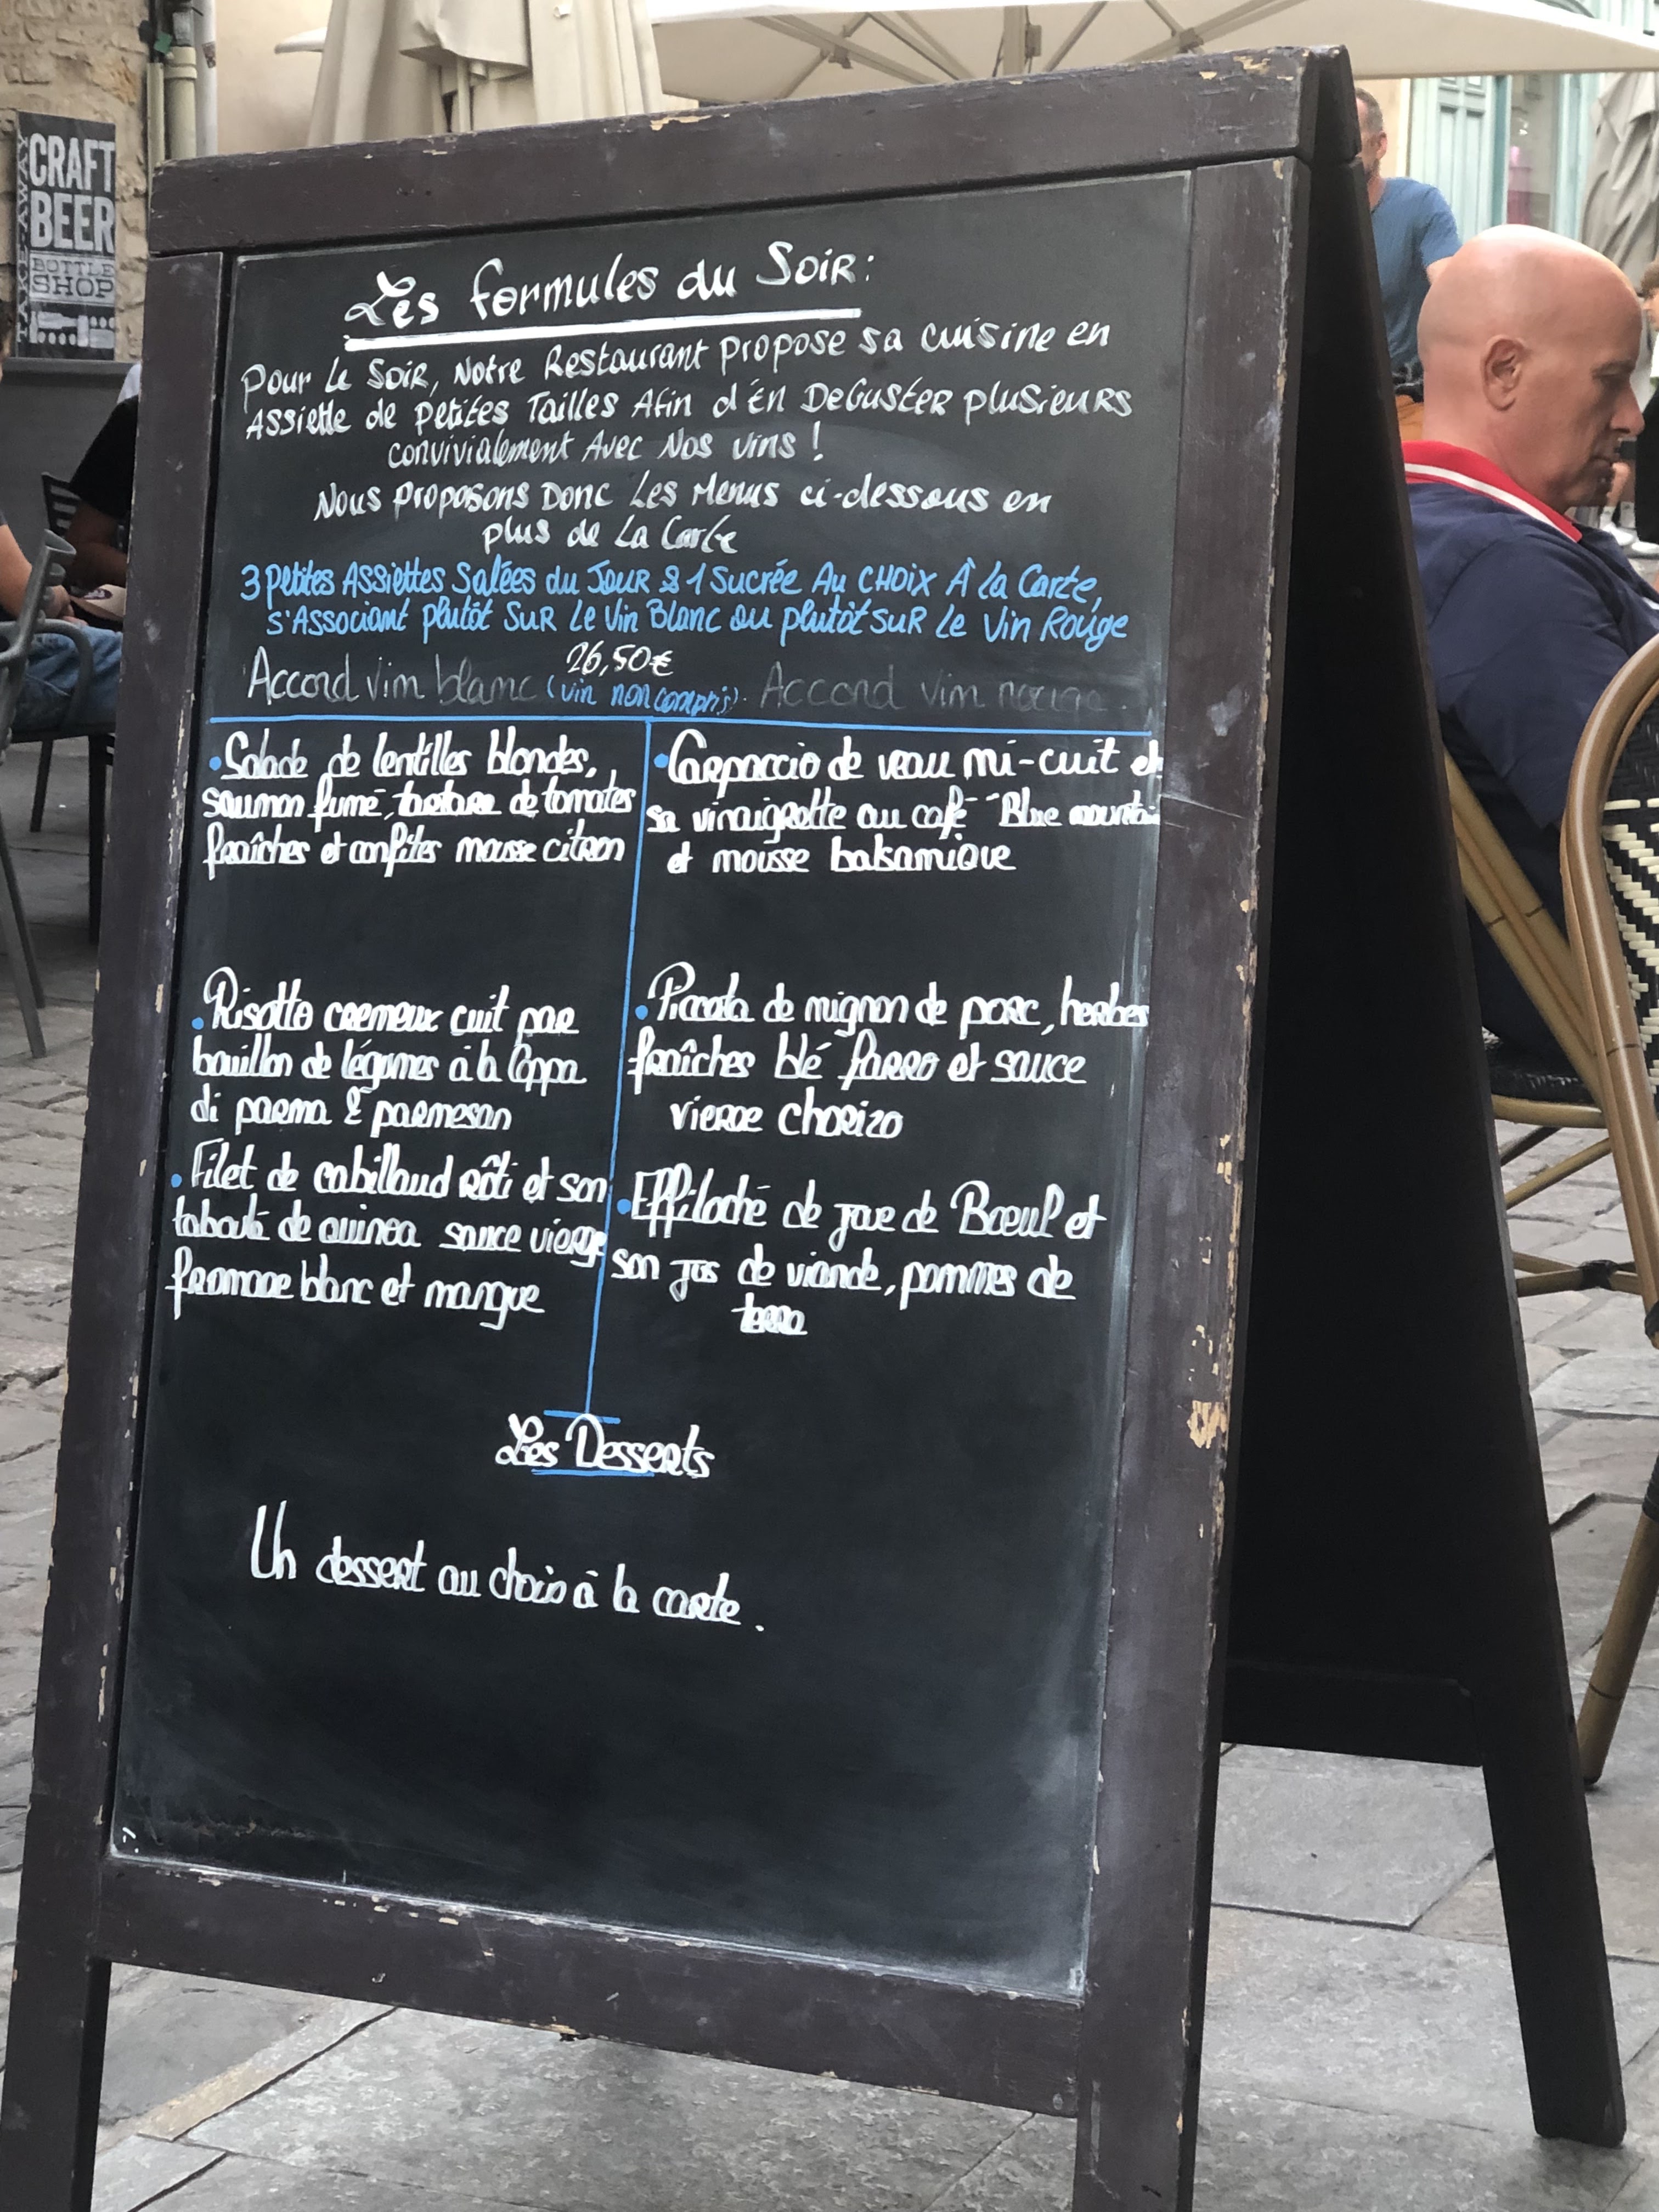 CRAFT
BEER
BOTTLE
SHOP
TAKE-AWAY
Les formules du Soir :
Pour le Soir, Notre Restaurant propose sa cuisine en
Assiette de petites Tailles Afin d'én Deguster plusieurs
convivialement Avec Nos vins !
Nous proposons Donc Les Menus ci-dessous en
plus de La Carte
3 petites Assiettes Salées du Jour & 1 Sucrée Au CHOIX À la Carte,
s'Associant plutôt Sur Le Vin Blanc ou plutôt sur Le Vin Rouge
26,50€
Accord vin blanc (vin non compris). Accord vin rouge.
• Salade de lentilles blondes,
saumon fumé, tartare de tomates
fraîches et confites mousse citron
• Risotto cremeux cuit par
bouillon de légumes à la Coppa
di parma & parmesan
• Filet de cabillaud rôti et son
taboulé de quinoa sauce vierge
fromage blanc et mangue
• Carpaccio de veau mi-cuit et
sa vinaigrette au café "Blue mountain
et mousse balsamique
• Piccata de mignon de porc, herbes
fraîches blé farro et sauce
vierge chorizo
• Effiloché de joue de Bœuf et
son jus de viande, pommes de
terre
Les Desserts
Un dessert au choix à la carte.